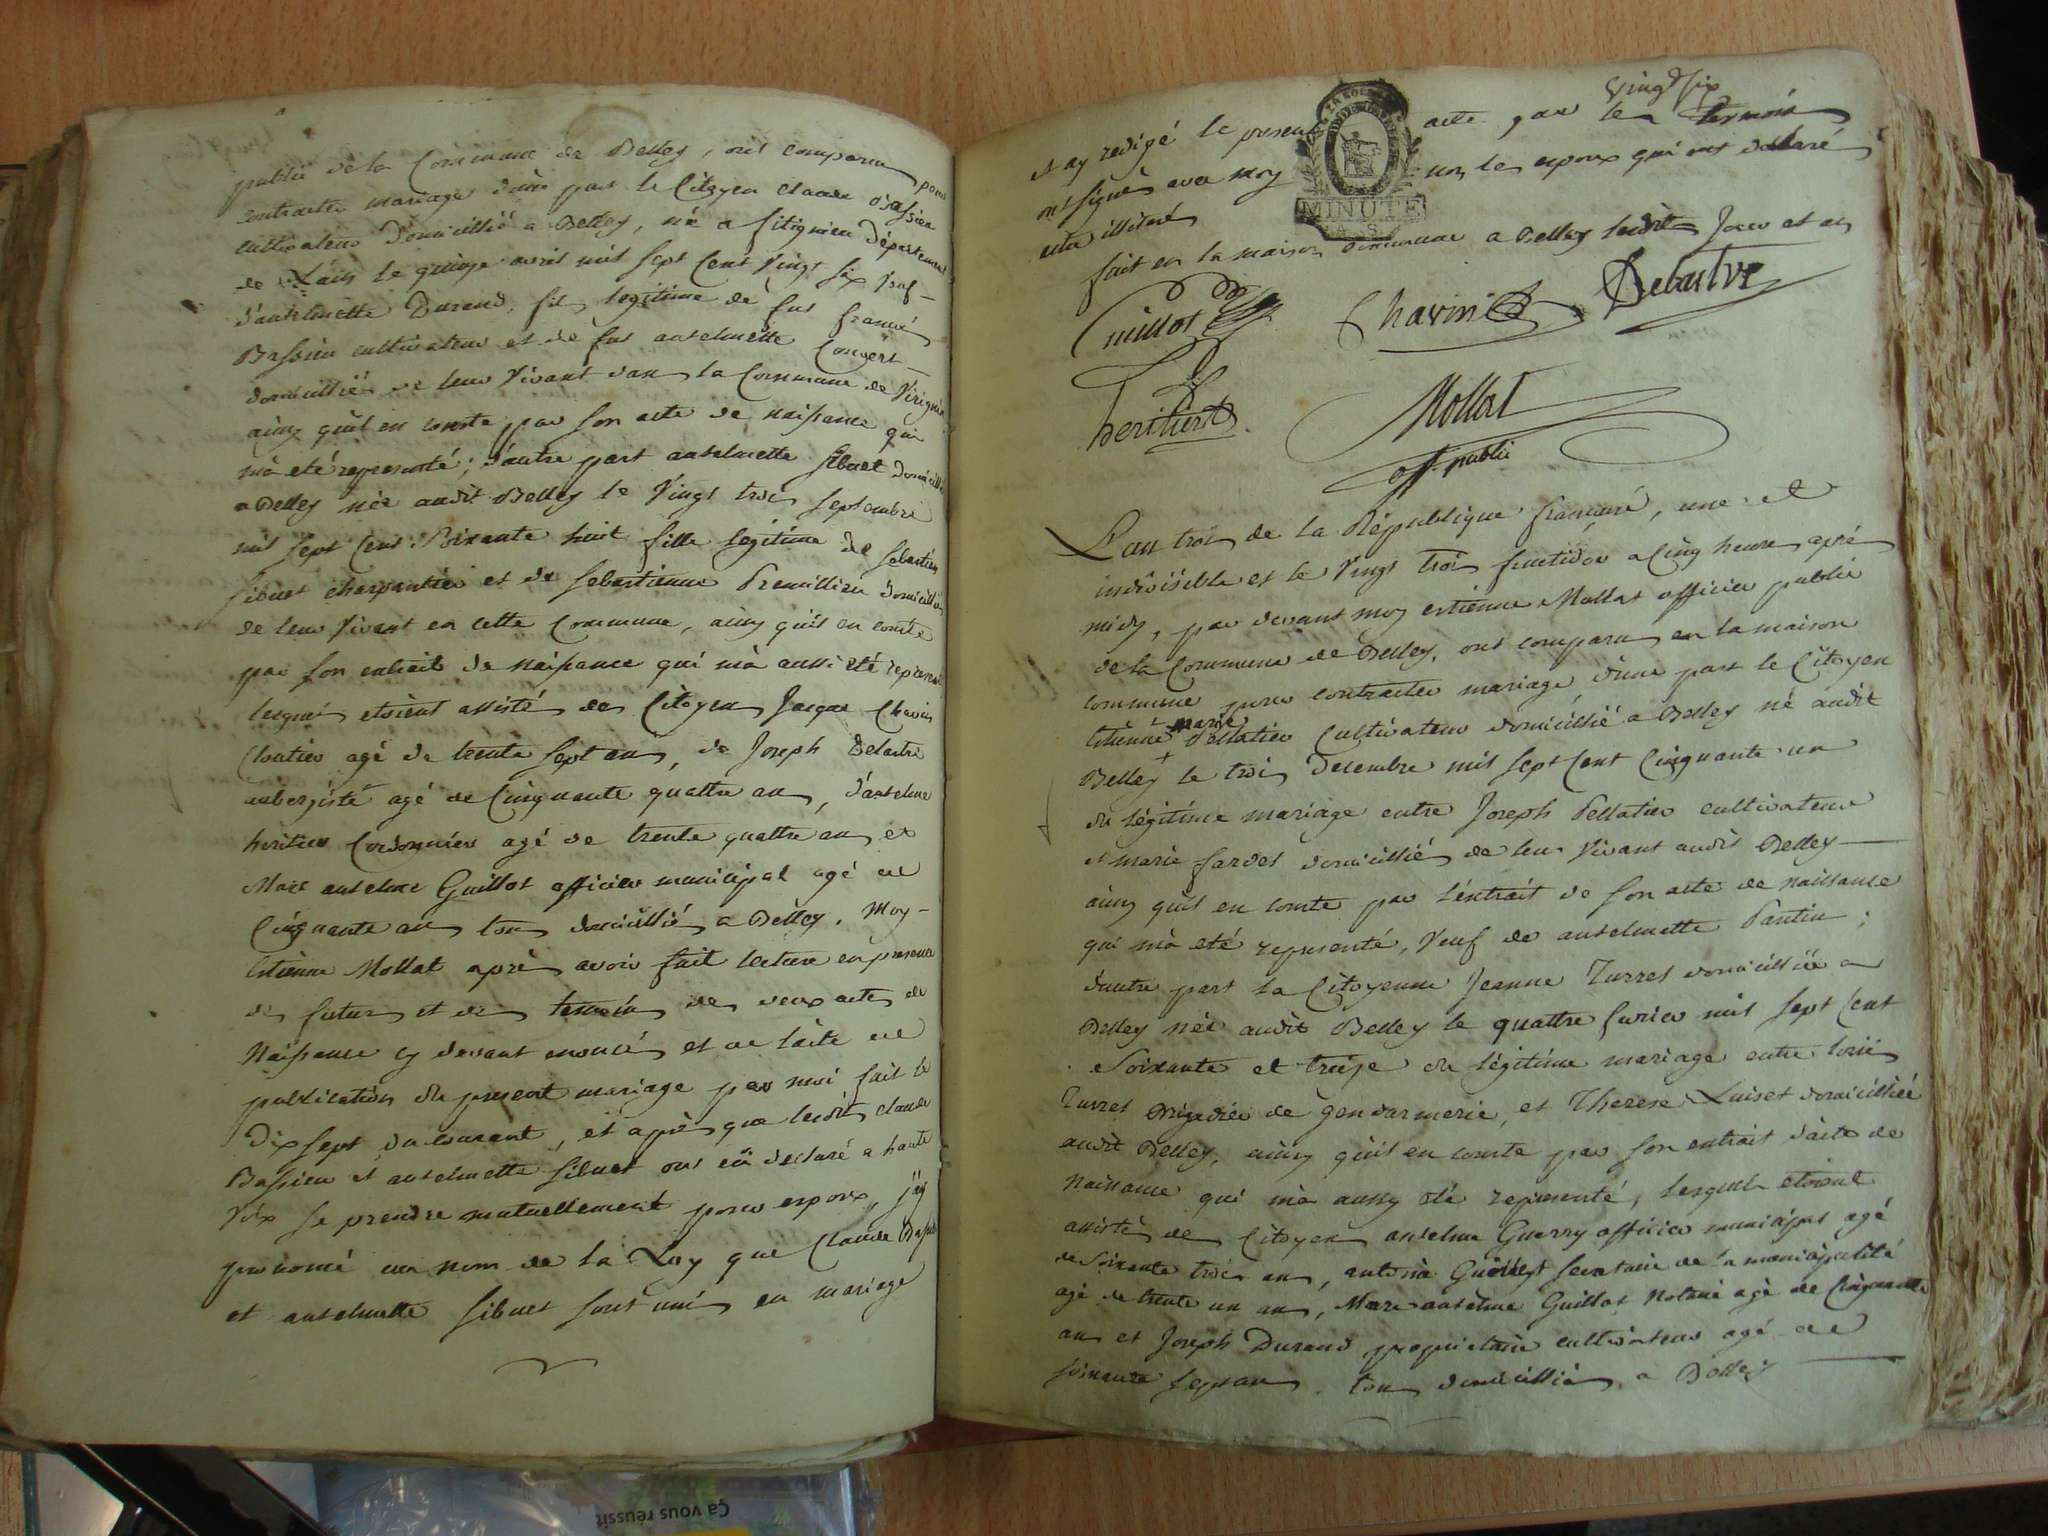 publié de la Commune de Belley, ont comparu pour
contracter mariage d'une part le Citoyen Claude Bassieu
cultivateur domicillié a Belley, né a Sitignieu département
de L'ain le quinze avril mil sept Cent Vingt six Veuf
d'antelmette Durand, fils legitime de fut francoi
Bassieu cultivateur et de fut antelmette Convert
domicilliés de leur Vivant dans la Commune de Virignin
ainsy quil en conste par son acte de naissance qui
m'a eté representé; d'autre part antelmette Sibuet domicillié
a Belley née audit Belley le Vingt trois septembre
mil sept Cent Soixante huit fille legitime de Sebastien
Sibuet charpentier et de Sebastienne Premillieu domicilliés
de leur Vivant en cette Commune, ainsy quil en conste
par son extrait de naissance qui m'a aussi eté representé
lesquels etoient assisté des Citoyens Jacque Chavin
Cloutier agé de trente sept ans, de Joseph Debastre
aubergiste agé de Cinquante quattre ans, d'antelme
heritier Cordonnier agé de trente quattre ans et
Marc antelme Guillot officier municipal agé de
Cinquante ans tous domicillié a Belley. Moy
Estienne Mollat aprés avoir fait lecture en presence
des futurs et des temoin des deux actes de
Naissance cy devant enoncés et de l'acte de
publication du present mariage par moi fait le
Dix sept du courant, et aprés que lesdits Claude
Bassieu et antelmette Sibuet ont eu declaré a haute
Voix se prendre mutuellement pour epoux, j'ay
prononcé au nom de la Loy que Claude Bassieu
et antelmette Sibuet sont unis en mariage
Vingt six
et ay redigé le present acte que les temoins
ont signés avec moy non les epoux qui ont declaré
etre illitéré
fait en la maison Commune a Belley lesdits Jour et an
Guillot Chavin Debastre
heritier Mollat
off. public
L'an trois de la République francaise, une et
indivisible et le Vingt trois fructidor a Cinq heure aprés
midy, par devant moy estienne Mollat officier public
de la Commune de Belley, ont comparu en la maison
commune pour contracter mariage d'une part le Citoyen
marie
Estienne Pellatier Cultivateur domicillié a Belley né audit
Belley le trois Decembre mil sept Cent Cinquante un
du légitime mariage entre Joseph Pellatier cultivateur
et marie fardet domicillié de leur Vivant audit Belley
ainsy quil en conste par l'extrait de son acte de naissance
qui m'a eté representé, Veuf de antelmette Pantin;
d'autre part la Citoyenne Jeanne Turrel domicilliée a
Belley née audit Belley le quattre fevrier mil sept Cent
Soixante et treize du légitime mariage entre
Turrel Brigadier de gendarmerie, et Therese Luiset domicilliée
audit Belley, ainsy qu'il en conste par son extrait d'acte de
naissance qui m'a aussy eté representé, lesquels etoient
assisté des Citoyens antelme Guerry officier municipal agé
de Soixante trois ans, secretaire de la municipalité
agé de trente un ans, Marc antelme Guillot Notaire agé de Cinquante
ans et Joseph Durand proprietaire cultivateur agé de
soixante tous domicilliés a Belley
MINUTE
Ça vous réussit